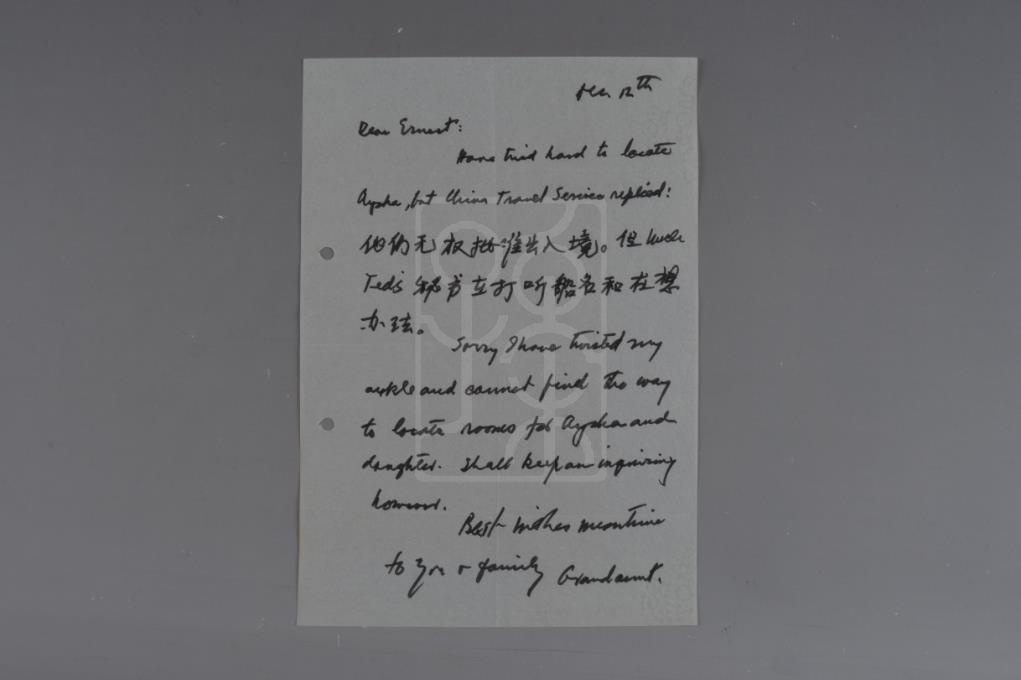 Dec 12th
Dear Ernest:
Have tried hard to locate
Aysha, but China Travel Service replied:
他们无权批准出入境。但 Uncle
Ted's 秘书在打听船名和在想
办法。
Sorry I have twisted my
ankle and cannot find the way
to locate rooms for Aysha and
daughter. Shall keep on inquiring
however.
Best wishes meantime
to you & family Grandaunt.